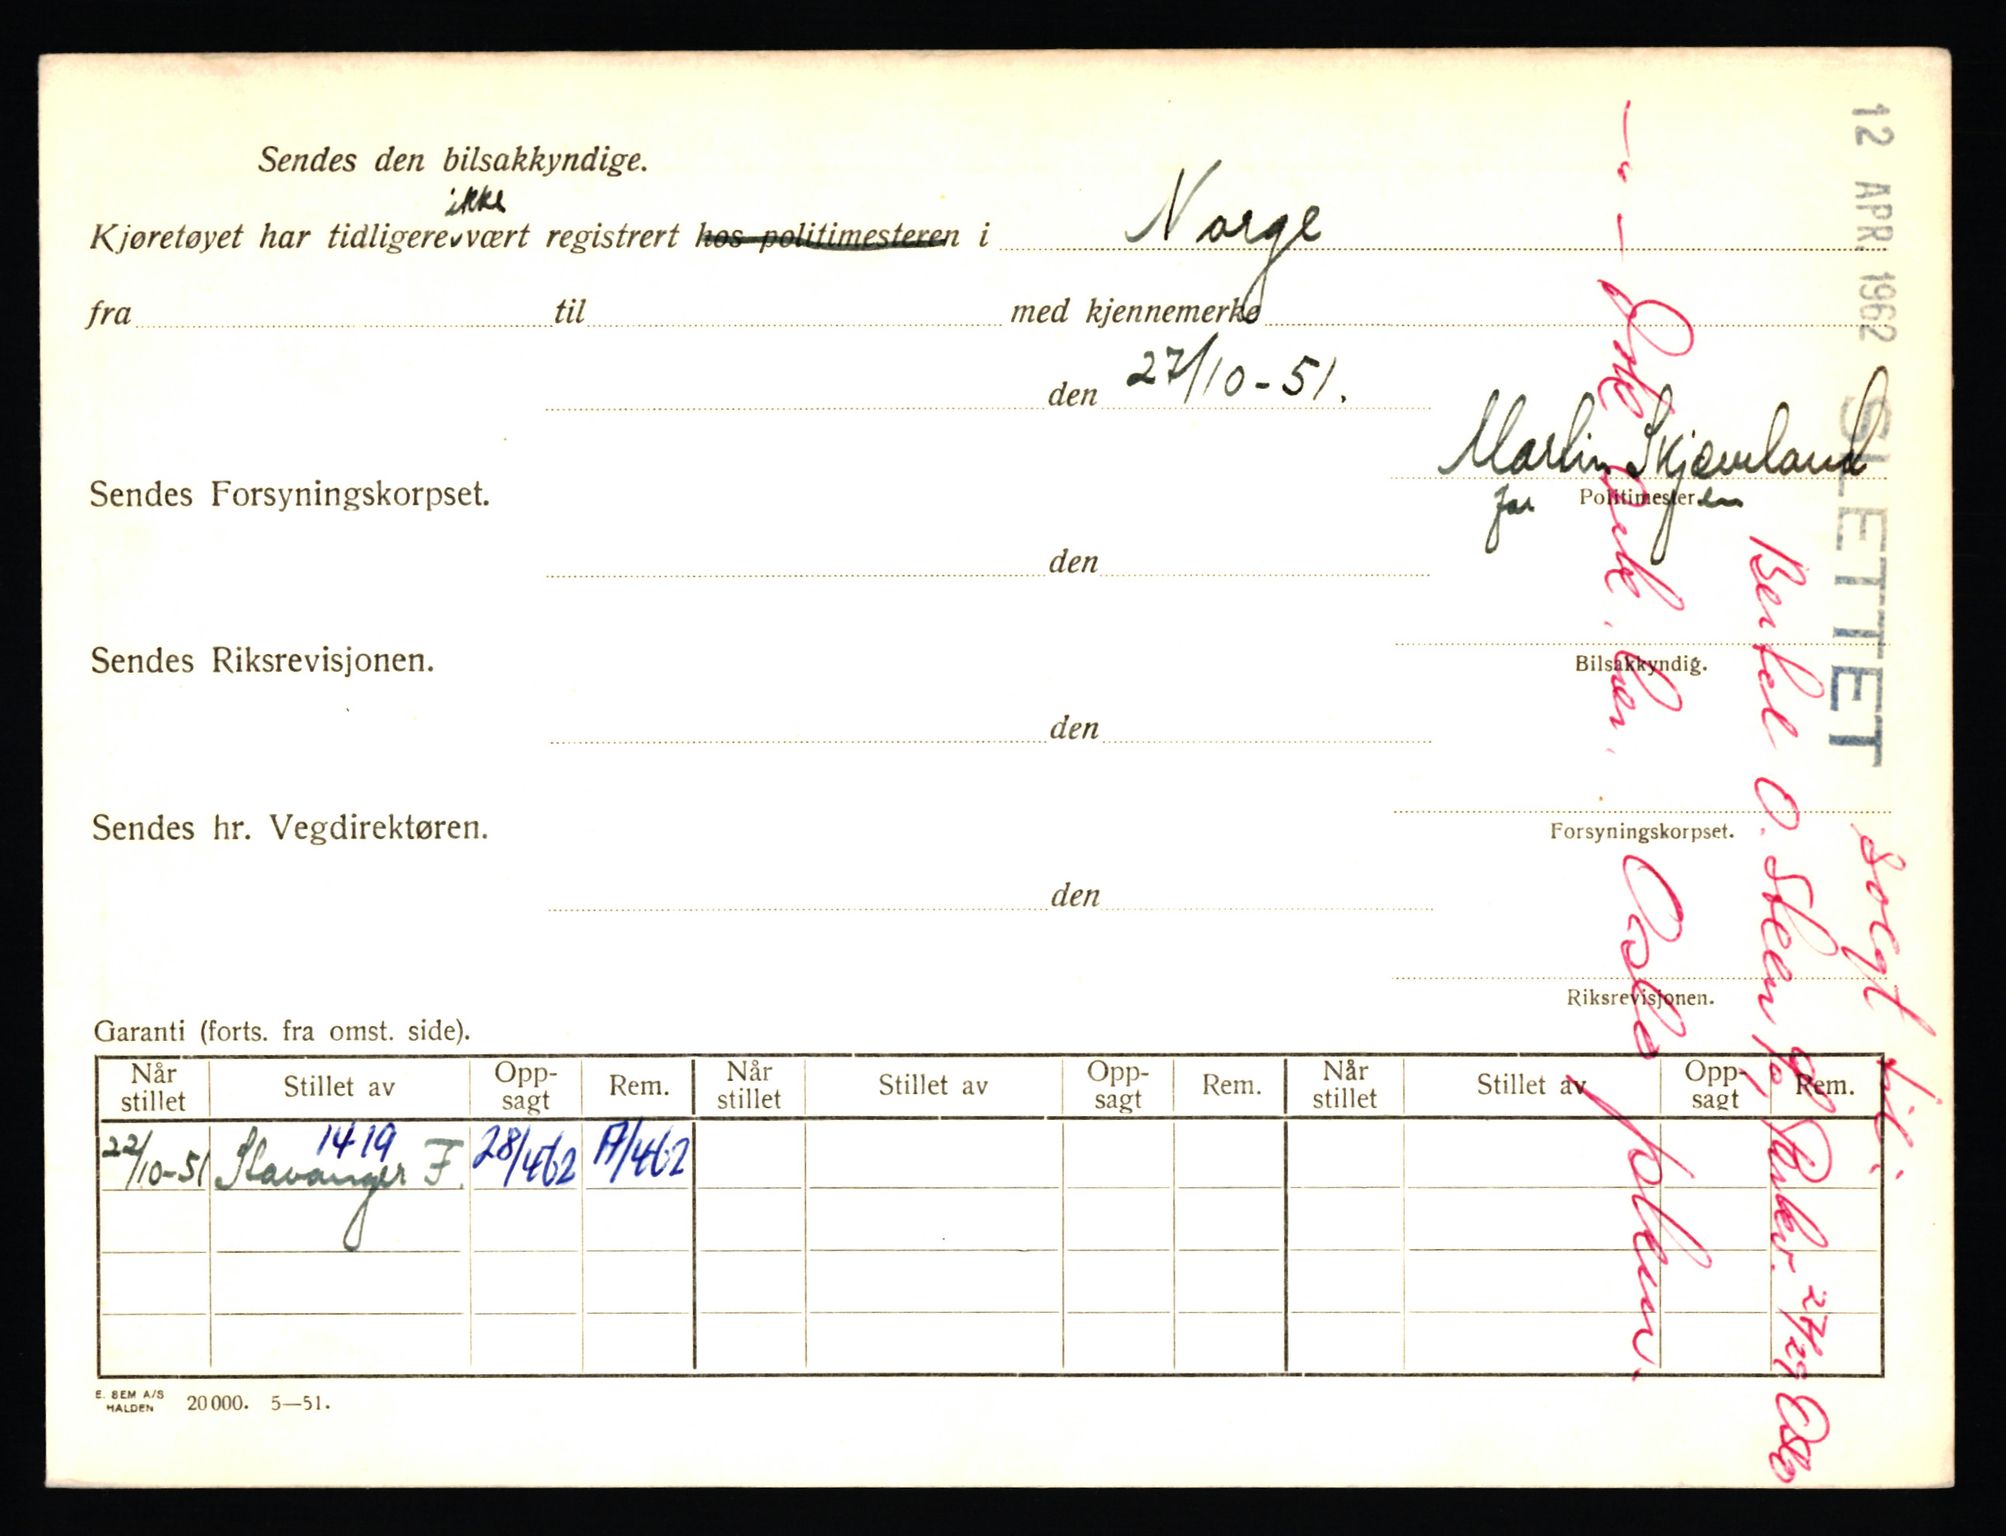 Sendes den bilsakkyndige.
ikke
Kjøretøyet har tidligere vært registrert hos politimesteren i Norge
fra til med kjennemerke
den 27/10-51.
Martin Skjæveland
Sendes Forsyningskorpset.
for Politimesteren
den
Sendes Riksrevisjonen.
Bilsakkyndig.
den
Sendes hr. Vegdirektøren.
Forsyningskorpset.
den
Riksrevisjonen.
Garanti (forts. fra omst. side).
Når stillet Stillet av Opp-sagt Rem. Når stillet Stillet av Opp-sagt Rem. Når stillet Stillet av Opp-sagt Rem.
1419
22/10-51 Stavanger F. 28/462 17/462
E. SEM A/S
HALDEN 20000. 5—51.
12 APR 1962 SLETTET
solgt til:
Bertel O. Steen 27/29 Oslo
Oslo